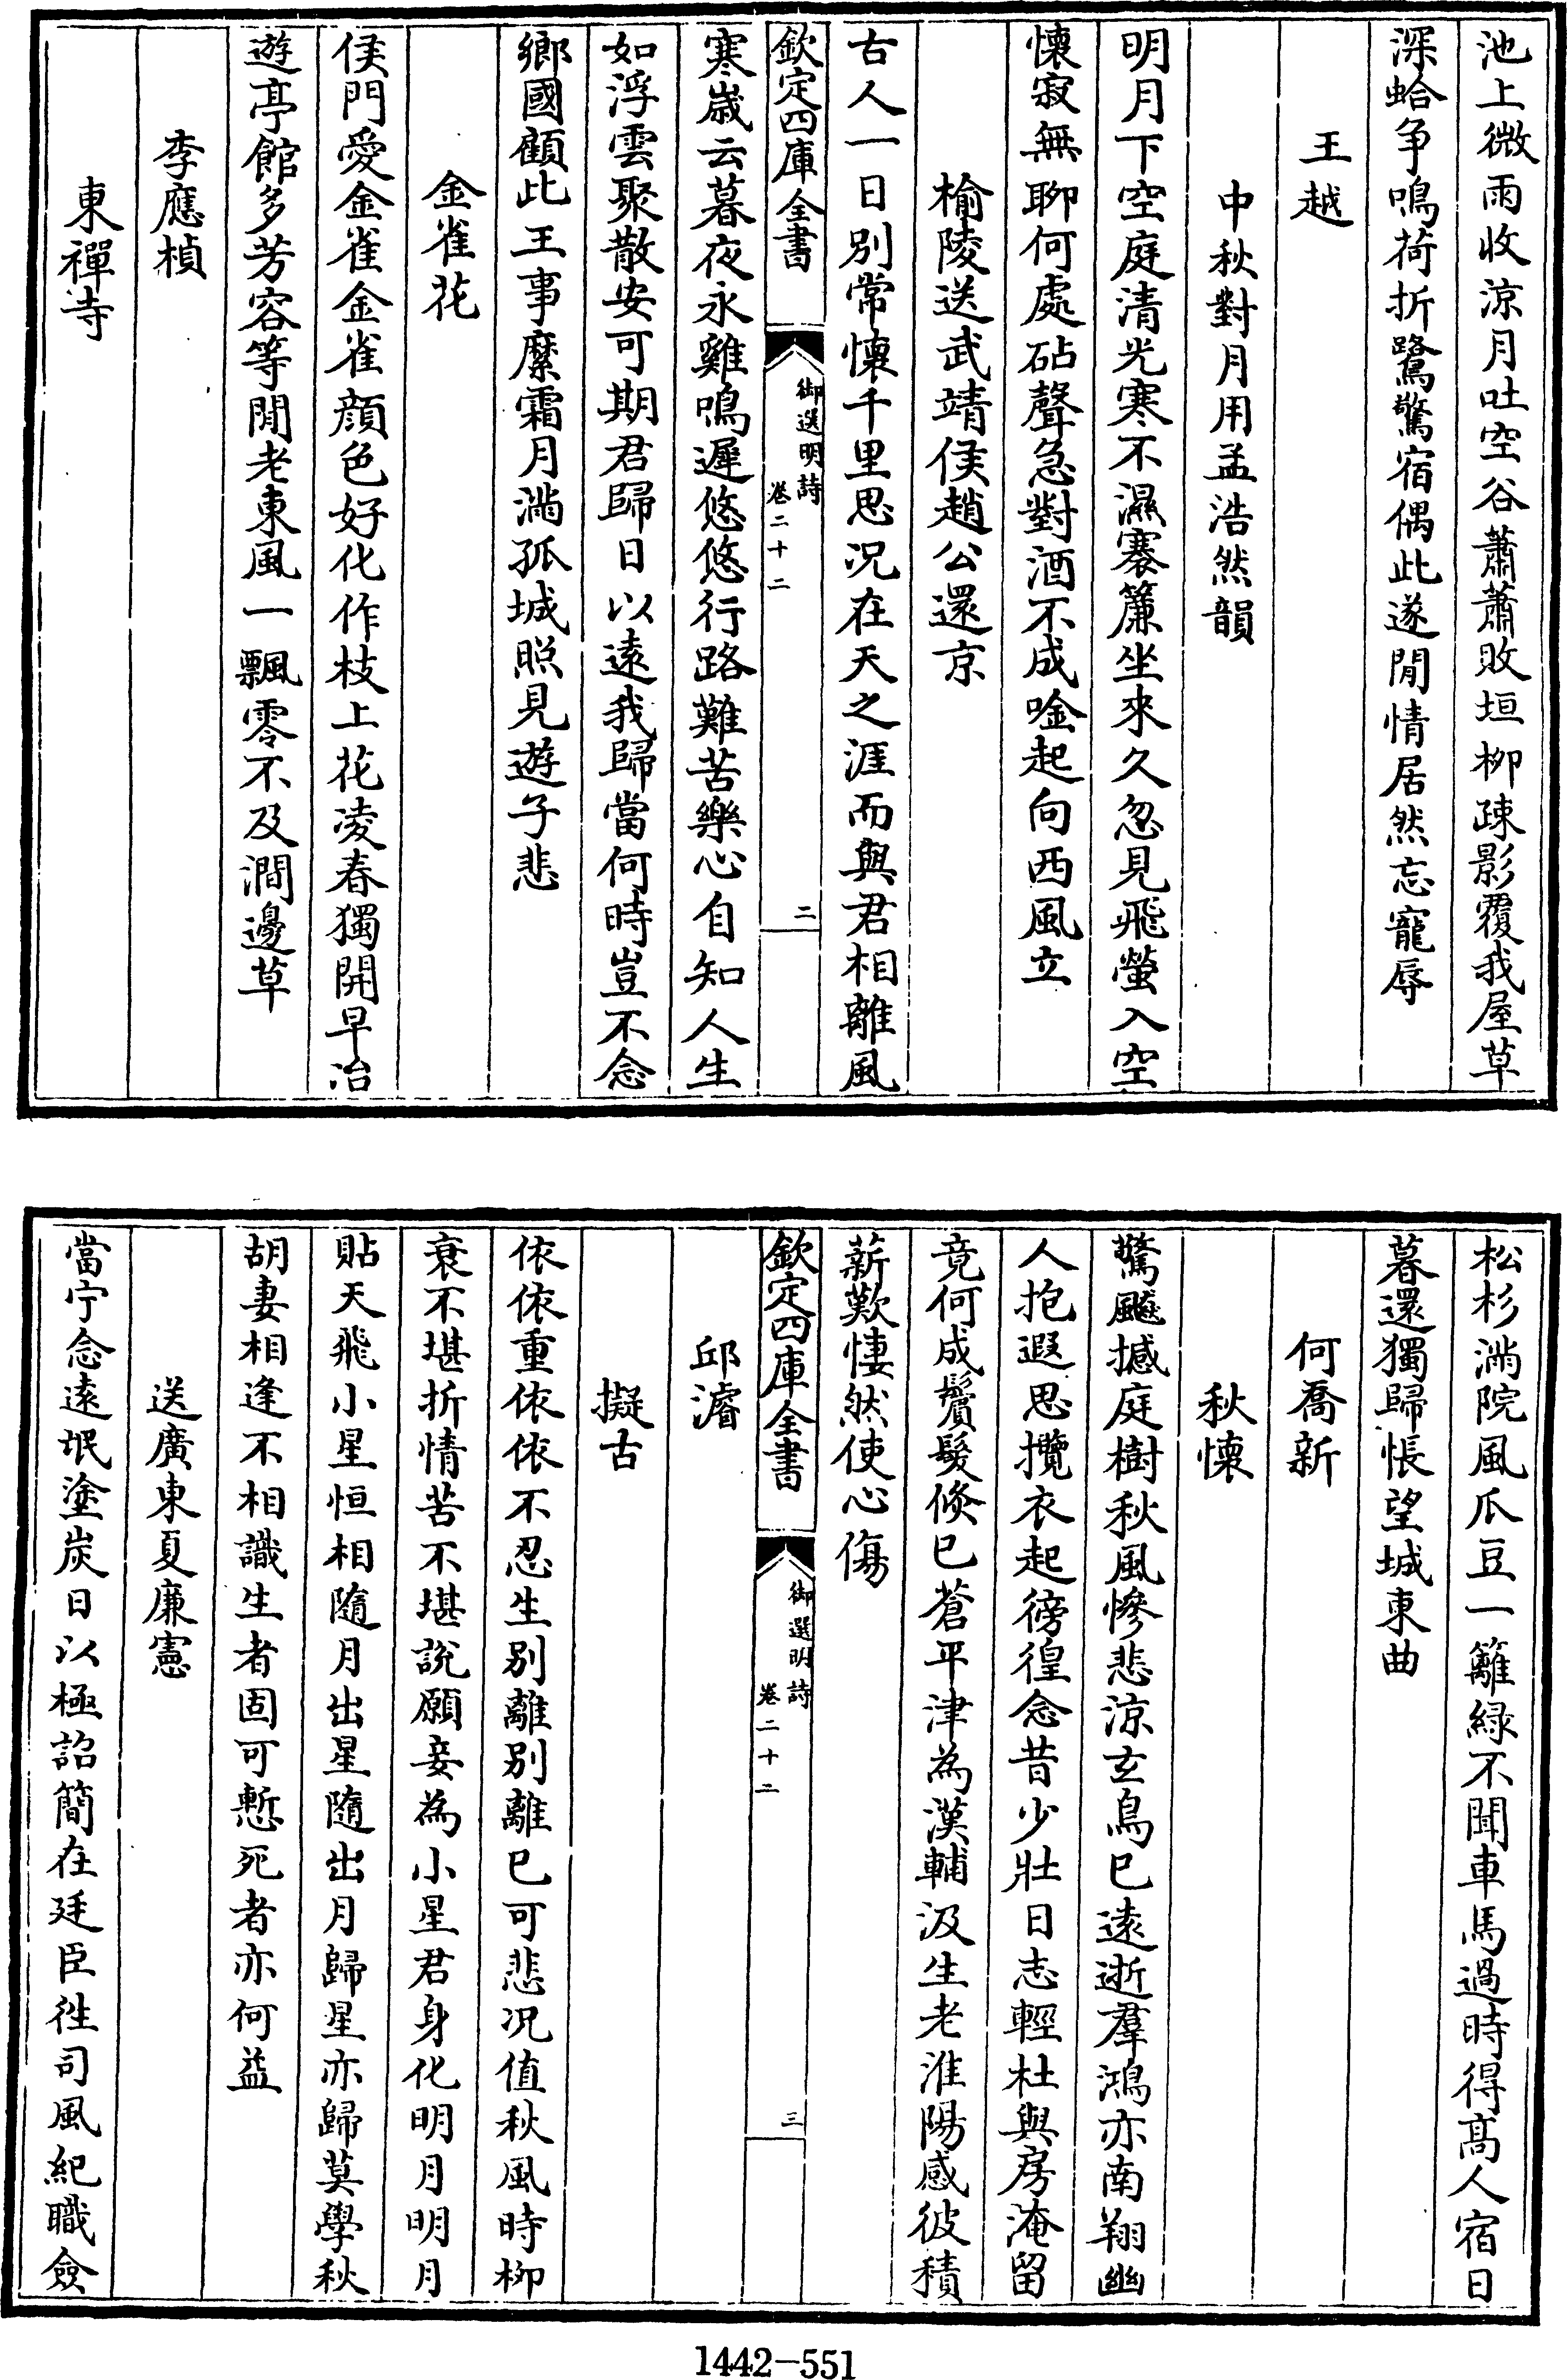 池上微雨收涼月吐空谷蕭蕭敗垣柳疎影覆我屋草
深蛤争鳴荷折鷺驚宿偶此遂閒情居然忘寵辱
王越
中秋對月用孟浩然韻
明月下空庭清光寒不濕褰簾坐來久忽見飛螢入空
懷寂無聊何處砧聲急對酒不成唫起向西風立
榆陵送武靖侯趙公還京
古人一日別常懷千里思况在天之涯而與君相離風
欽定四庫全書
御選明詩
卷二十二
二
寒歲云暮夜永雞鳴遲悠悠行路難苦樂心自知人生
如浮雲聚散安可期君歸日以遠我歸當何時豈不念
鄉國顧此王事縻霜月滿孤城照見遊子悲
金雀花
侯門愛金雀金雀顔色好化作枝上花凌春獨開早冶
遊亭館多芳容等閒老東風一飄零不及澗邊草
李應楨
東禪寺
松杉滿院風瓜豆一籬緑不聞車馬過時得髙人宿日
暮還獨歸悵望城東曲
何喬新
秋懷
驚飈撼庭樹秋風慘悲涼玄鳥已遠逝羣鴻亦南翔幽
人抱遐思攬衣起徬徨念昔少壯日志輕杜與房淹留
竟何成鬢髮倏已蒼平津為漢輔汲生老淮陽感彼積
薪歎悽然使心傷
欽定四庫全書
御選明詩
卷二十二
三
邱濬
擬古
依依重依依不忍生别離别離已可悲况值秋風時柳
衰不堪折情苦不堪說願妾為小星君身化明月明月
貼天飛小星恒相隨月出星隨出月歸星亦歸莫學秋
胡妻相逢不相識生者固可慙死者亦何益
送廣東夏廉憲
當宁念遠氓塗炭日以極詔簡在廷臣徃司風紀職僉
1442-551